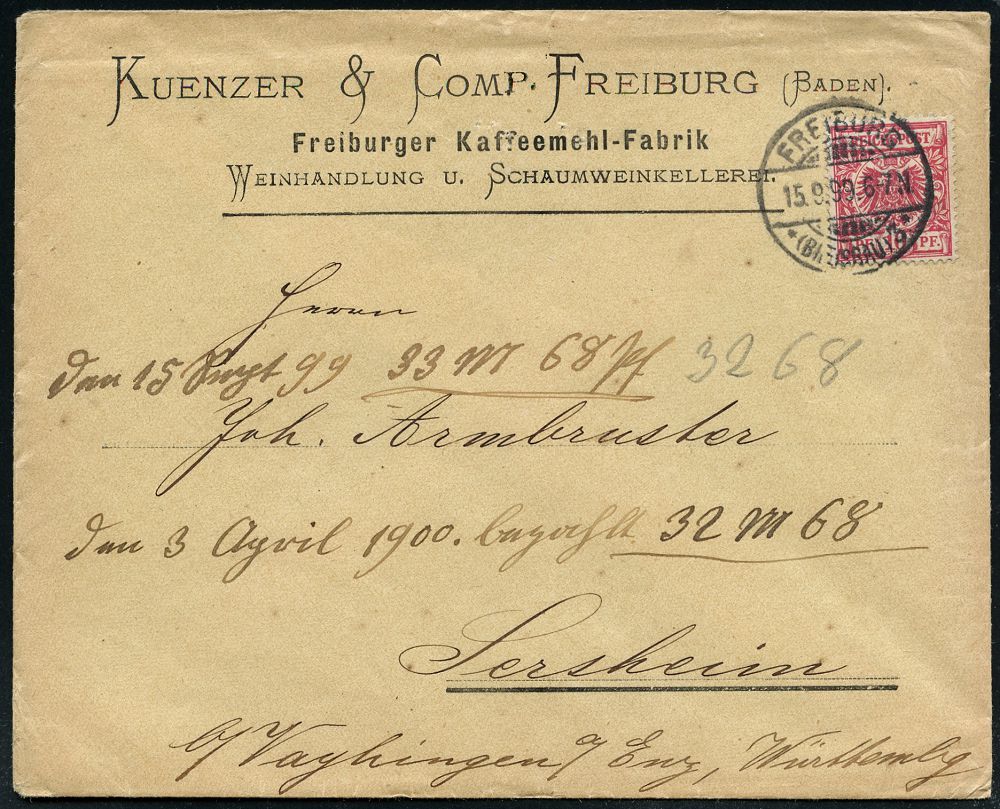 KUENZER & COMP. FREIBURG (BADEN).
Freiburger Kaffeemehl-Fabrik
WEINHANDLUNG U. SCHAUMWEINKELLEREI.
FREIBURG
15.9.99.6-7N.
* (BREISGAU) *
REICHSPOST
PF.
Herrn
den 15 Sept 99 33 M 68 Pf 32 68
Joh. Armbruster
den 3 April 1900. bezahlt 32 M 68
Sersheim
b/ Vayhingen a/ Enz, Württembg